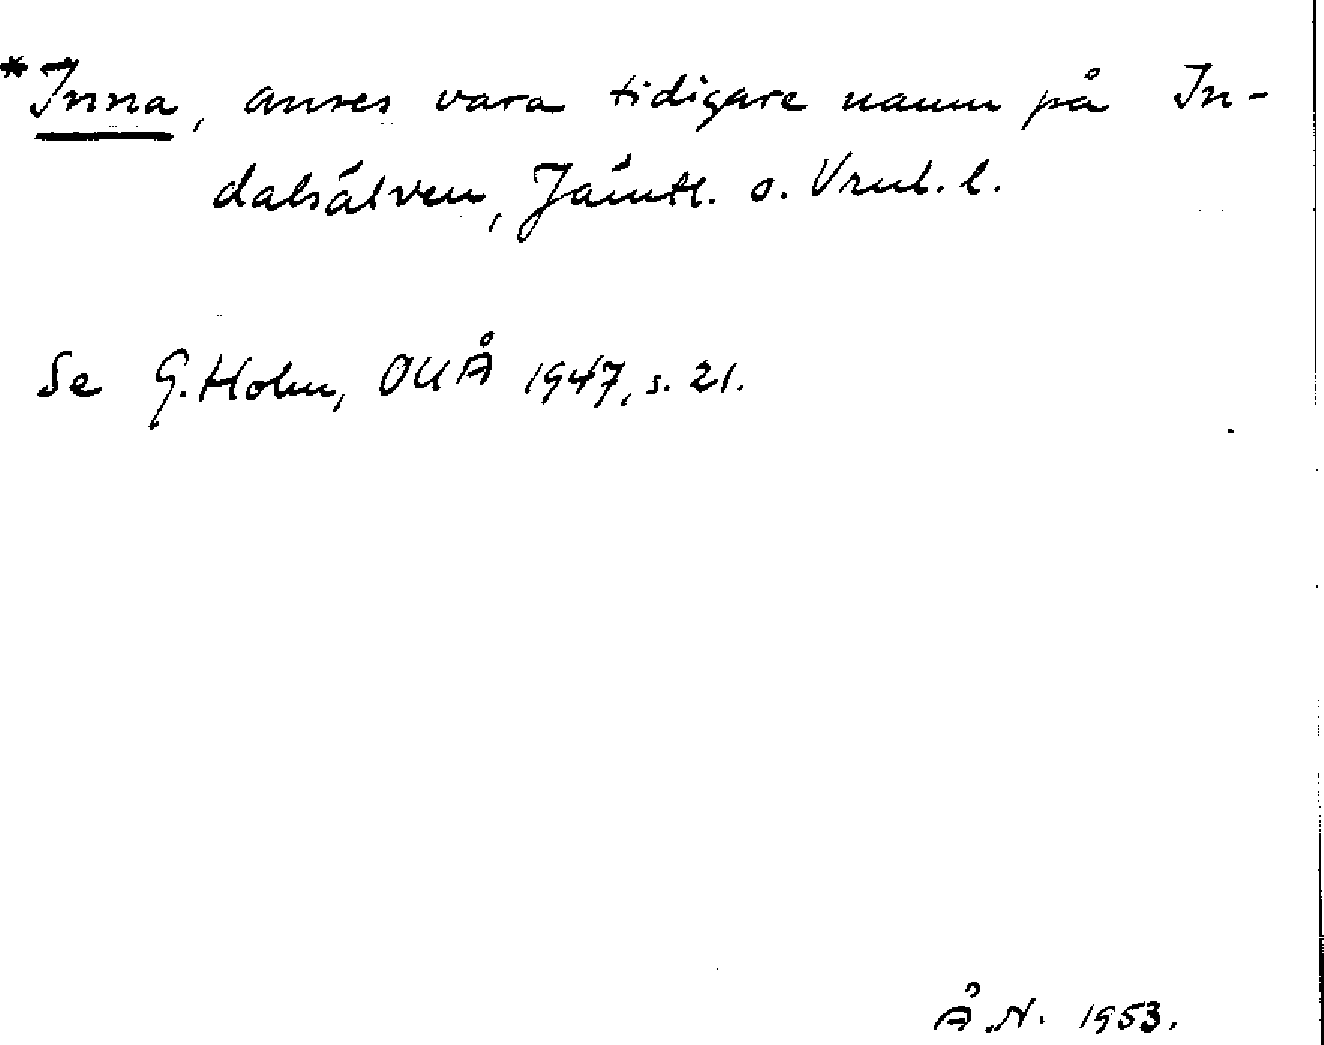 *Inna, anses vara tidigare namn på In-
dalsälven, Jämtl. o. Vrml. l.
Se G. Holm, OUÅ 1947, s. 21.
Å.N. 1953.